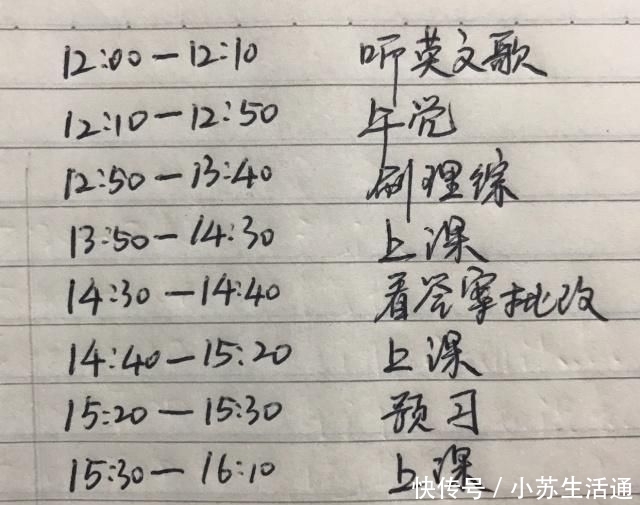 12:00—12:10 听英文歌
12:10—12:50 午觉
12:50—13:40 刷理综
13:50—14:30 上课
14:30—14:40 看答案批改
14:40—15:20 上课
15:20—15:30 预习
15:30—16:10 上课
快传号/小苏生活通